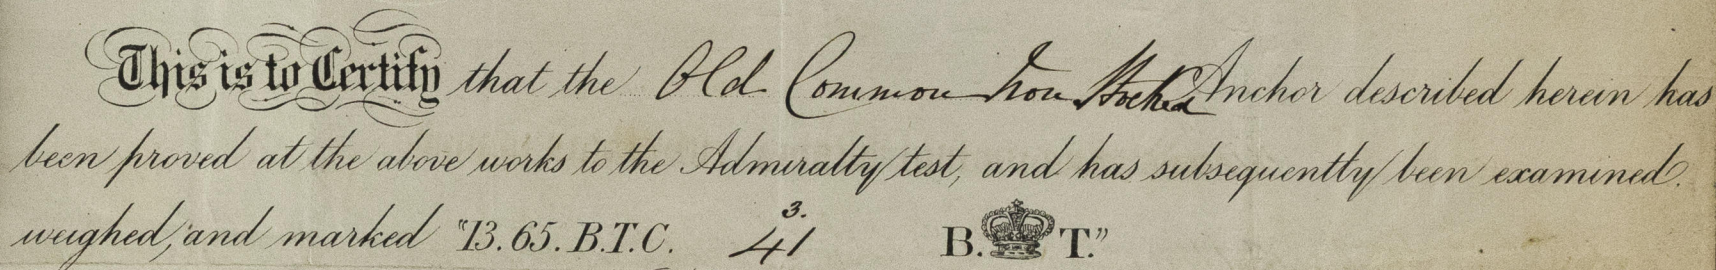 This is to Certify that the Old Common Iron Stocked Anchor described herein has
been proved at the above works to the Admiralty test, and has subsequently been examined.
weighed, and marked "13.65.B.T.C. 3. 41 B. T."